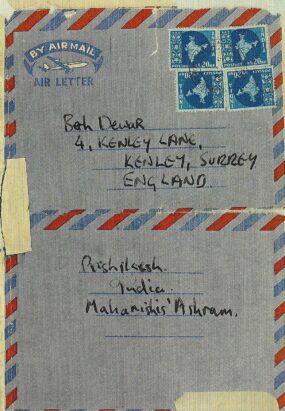 BY AIR MAIL
AIR LETTER
Beth Dewar
4, KENLEY LANE,
KENLEY, SURREY
ENGLAND.
Rishikesh.
India.
Maharishis' Ashram.